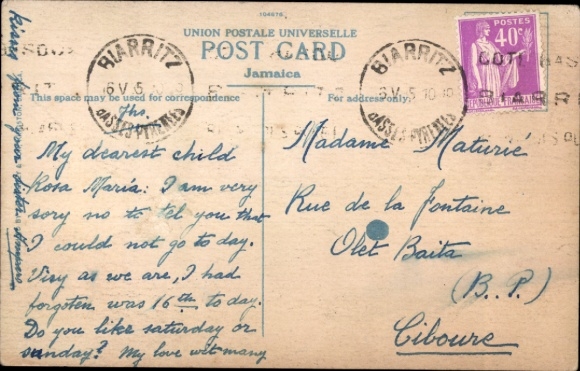 UNION POSTALE UNIVERSELLE
POST CARD
Jamaica
This space may be used for correspondence
For address only.
BIARRITZ
BASSES-PYRENEES
BIARRITZ
6 V 5 10 19
BASSES-PYRENEES
POSTES
40c
ths.
My dearest child
Rosa María: I am very
sory no to tel you that
I could not go to day.
Visy as we are, I had
forgoten was 16th to day.
Do you like saturday or
sunday? My love wit many
kising from your sister
Madame Maturié
Rue de la Fontaine
Olet Baita
(B. P.)
Ciboure